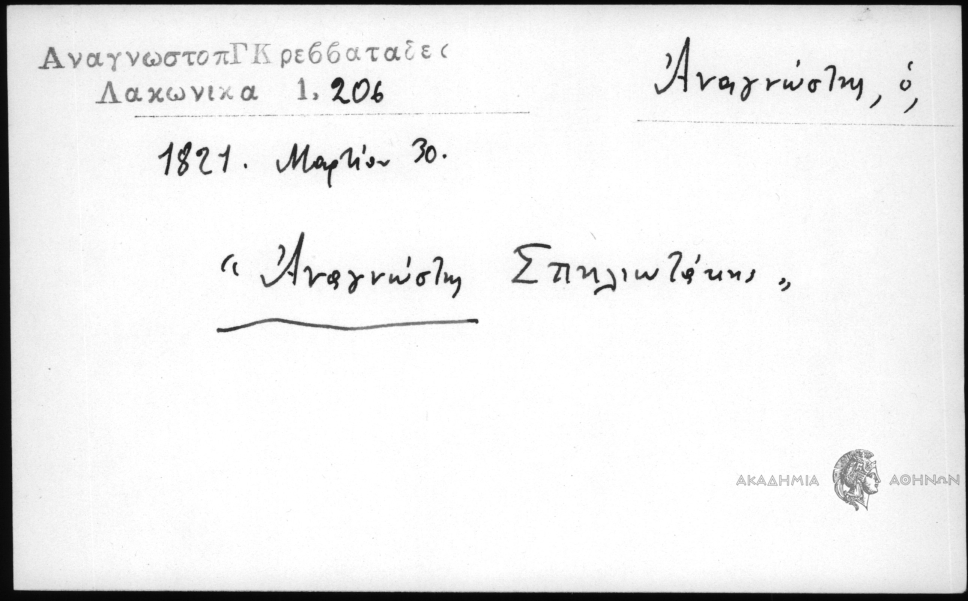 ΑναγνωστοπΓΚρεββαταδες
Λακωνικα 1, 206
Ἀναγνώστης, ὁ,
1821. Μαρτίου 30.
“ Ἀναγνώστης Σπηλιωτάκης „
ΑΚΑΔΗΜΙΑ ΑΘΗΝΩΝ